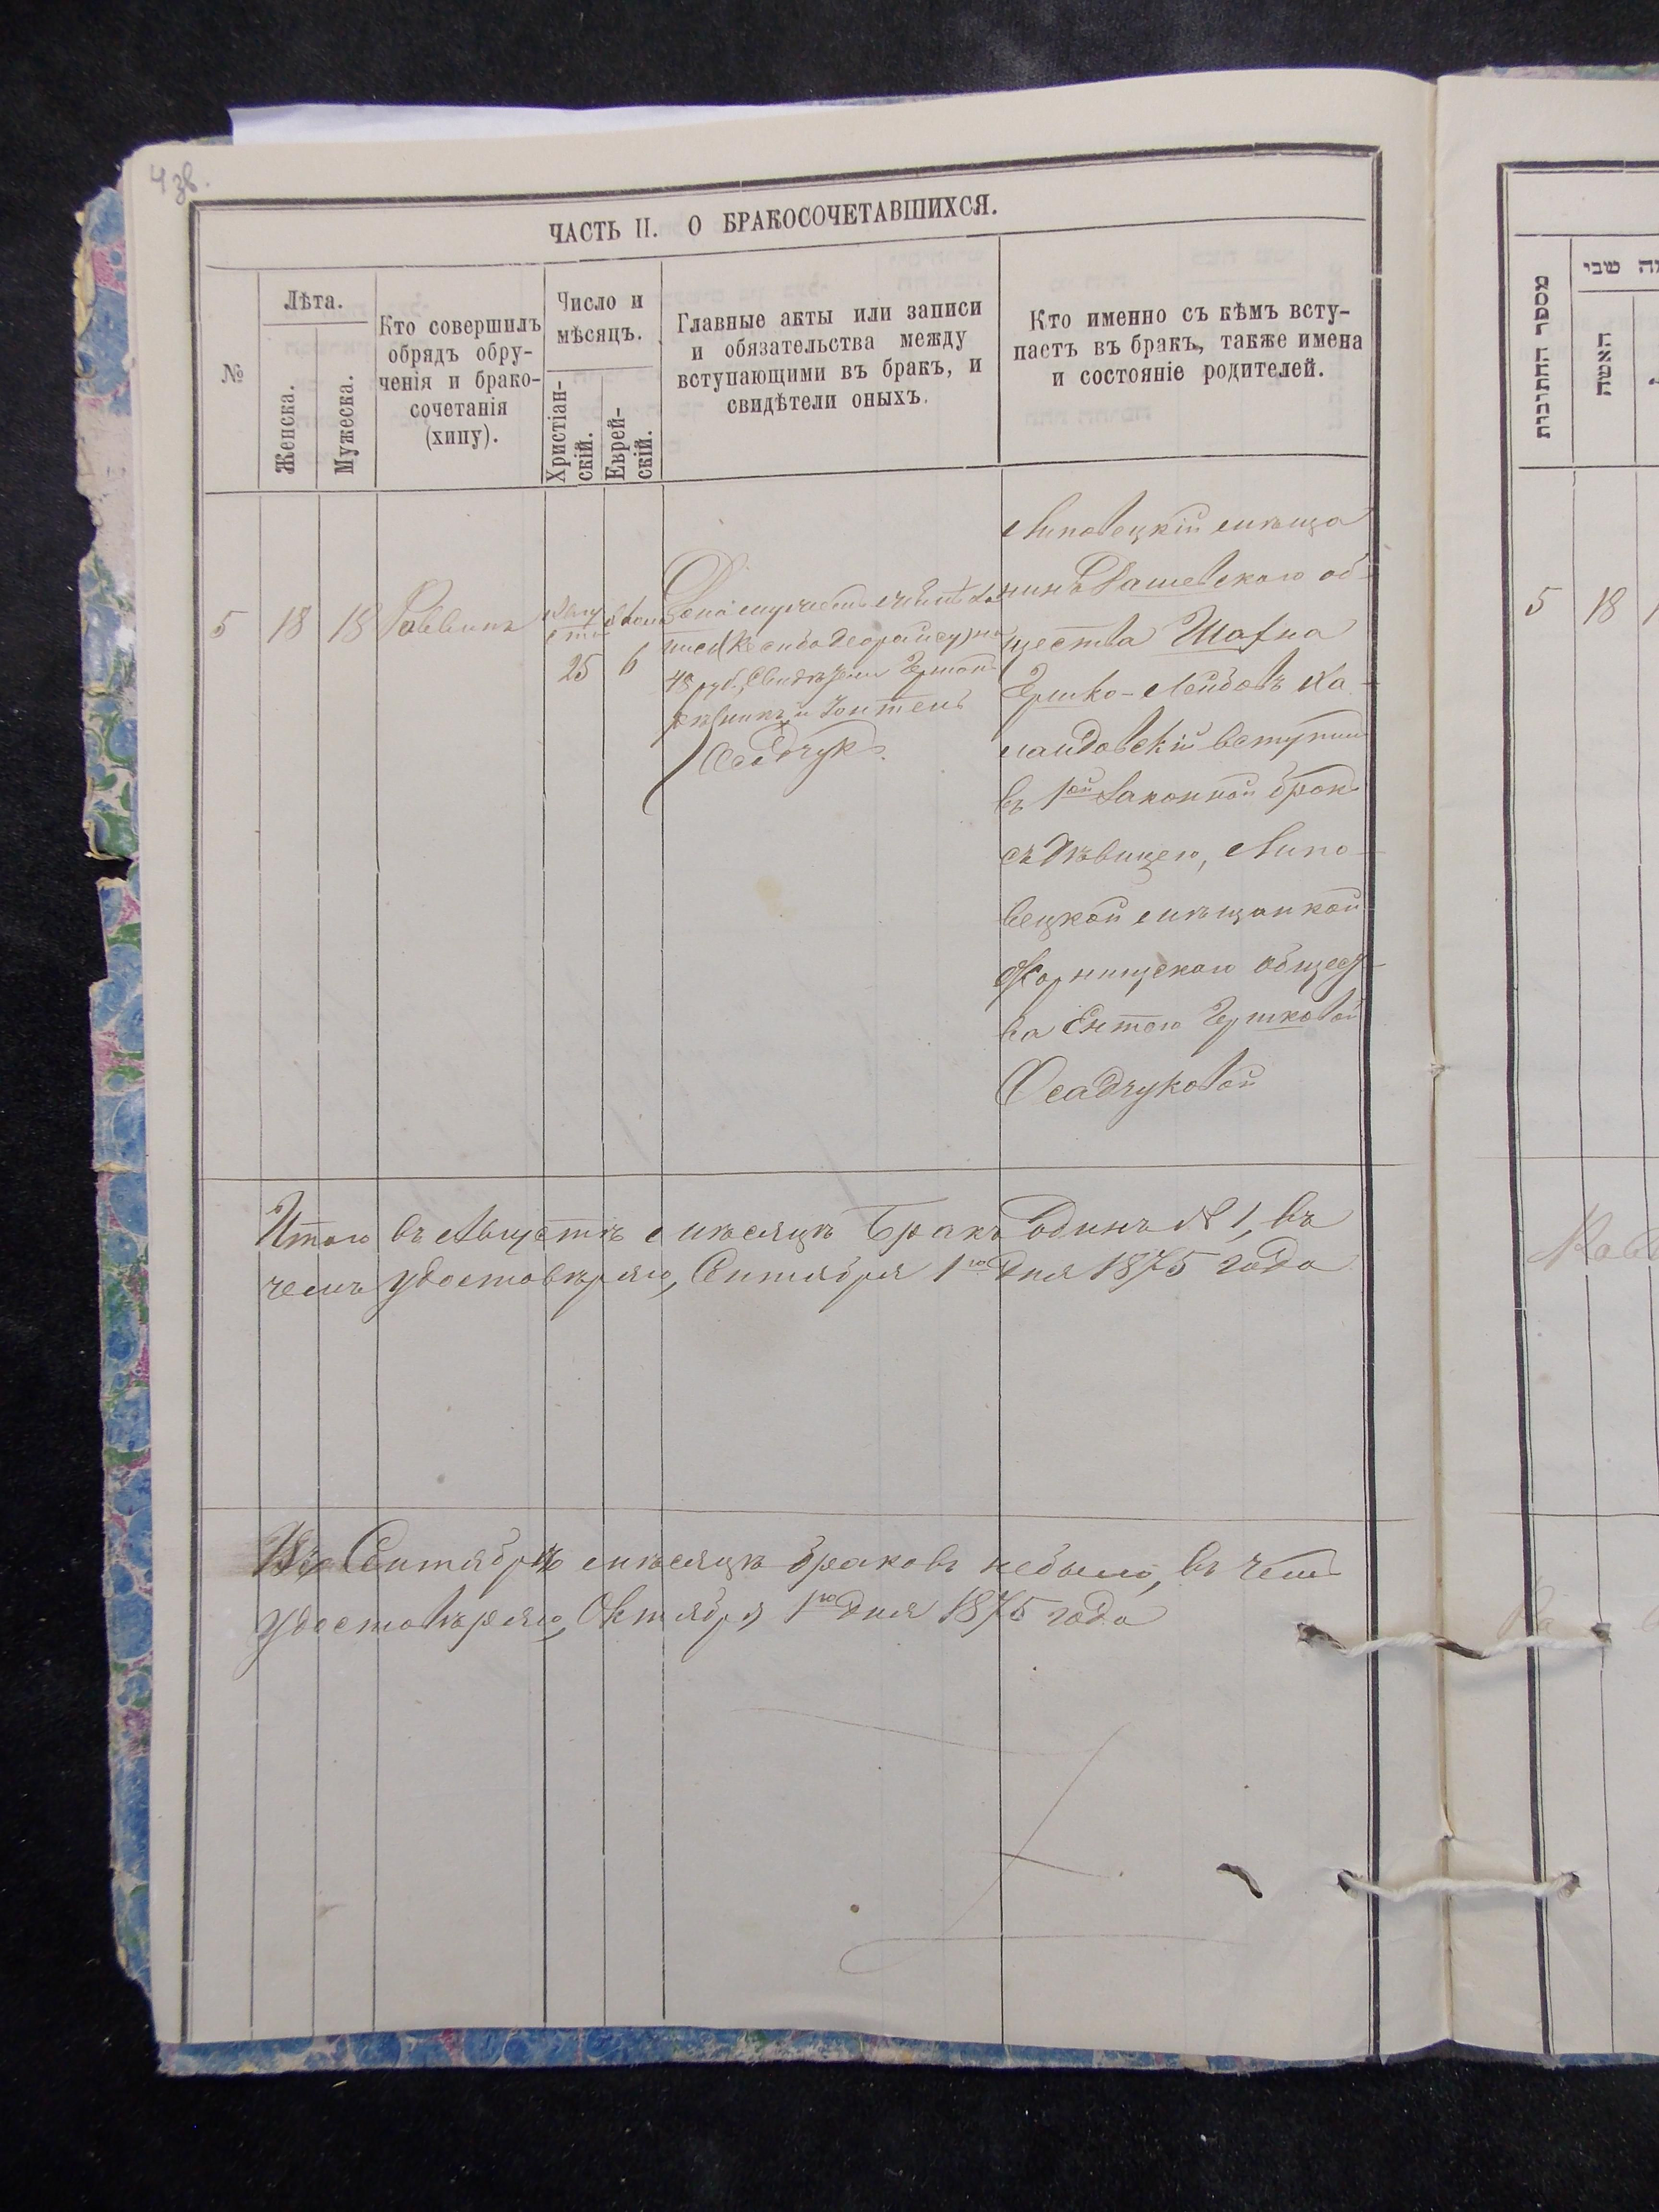 4 зв.
ЧАСТЬ II. О БРАКОСОЧЕТАВШИХСЯ.
№
Лѣта.
Женска.
Мужеска.
Кто совершилъ
обрядъ обру-
ченія и брако-
сочетанія
(хипу).
Число и
мѣсяцъ.
Христіан-
скій.
Еврей-
скій.
Главные акты или записи
и обязательства между
вступающими въ бракъ, и
свидѣтели оныхъ.
Кто именно съ кѣмъ всту-
паетъ въ бракъ, также имена
и состояніе родителей.
5
18
18
Раввинъ
Авгу
ста
25
6
48 руб., Свидѣтели
Осадчукъ.
Липовецкій мѣща
нинъ Дашевскаго об-
щества Шахна
Гершко-Лейбовъ Ка-
ландовскій вступил
въ 1ой Законной брак
съ дѣвицею, Липо-
вецкой мѣщанкой
Жорнищскаго общест-
ва Ентою Гершковой
Осадчуковой
Итого въ Августѣ мѣсяцѣ Бракъ Одинъ № 1, въ
чемъ удостовѣряю, Сентября 1го дня 1875 года
Въ Сентябрѣ мѣсяцѣ браковъ небыло, въ чем
удостовѣряю, Октября 1го дня 1875 года
מספר החתונות
האשה
שבי
5
18